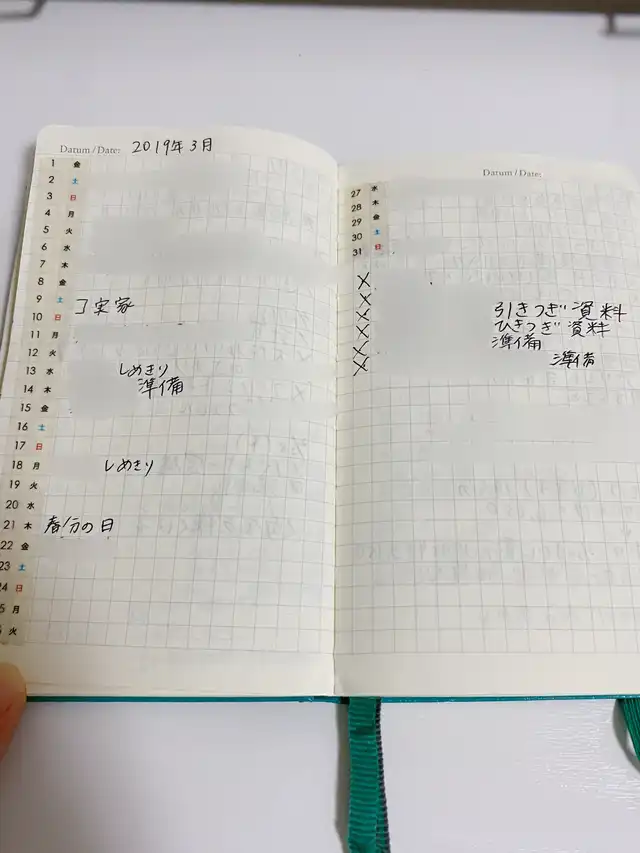 Datum / Date: 2019年3月
1 金
2 土
3 日
4 月
5 火
6 水
7 木
8 金
9 土 コ実家
10 日
11 月
12 火
13 水 しめきり
14 木 準備
15 金
16 土
17 日
18 月 しめきり
19 火
20 水
21 木 春分の日
22 金
23 土
24 日
5 月
火
Datum / Date:
27 水
28 木
29 金
30 土
31 日
×
×
× 引きつぎ資料
× ひきつぎ資料
× 準備
× 準備